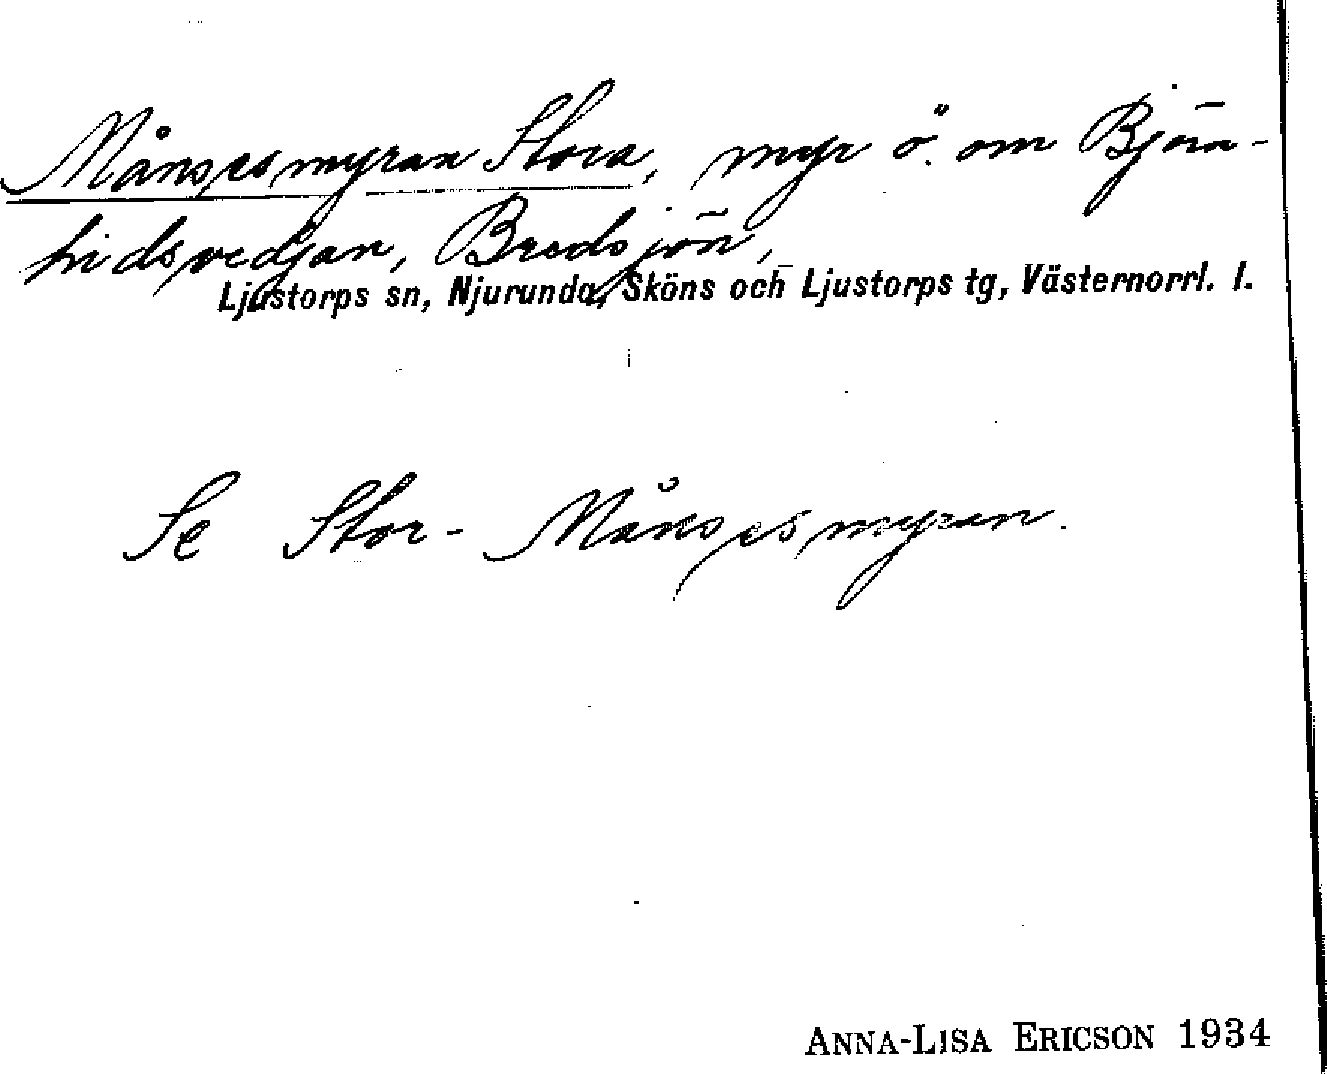 Månsesmyran Stora, myr ö. om Björn-
hidsvedjan, Bredsjön,
Ljustorps sn, Njurunda, Sköns och Ljustorps tg, Västernorrl. l.
Se Stor-Månsesmyran.
ANNA-LISA ERICSON 1934